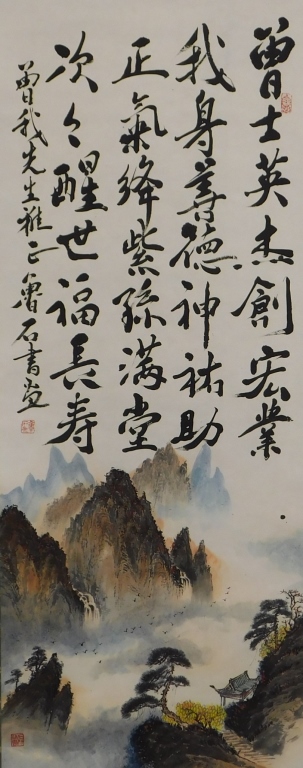 曽士英杰創宏業
我身善德神祐助
正氣絳紫孫滿堂
次々醒世福長寿
曽我先生雅正魯石書畫